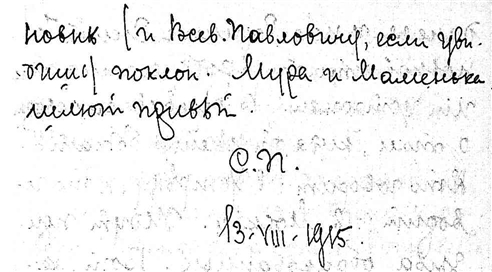 новне (и Всев. Павловичу, если уви-
дишь) поклон. Мура и Маменька
шлют привет.
С. П.
13-VIII-1915.